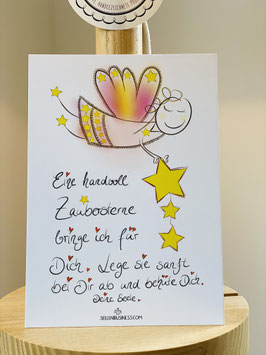 Eine handvoll
Zaubersterne
bringe ich für
Dich. Lege sie sanft
bei Dir ab und behüte Dich.
Deine Seele.
SEELENBUSINESS.COM